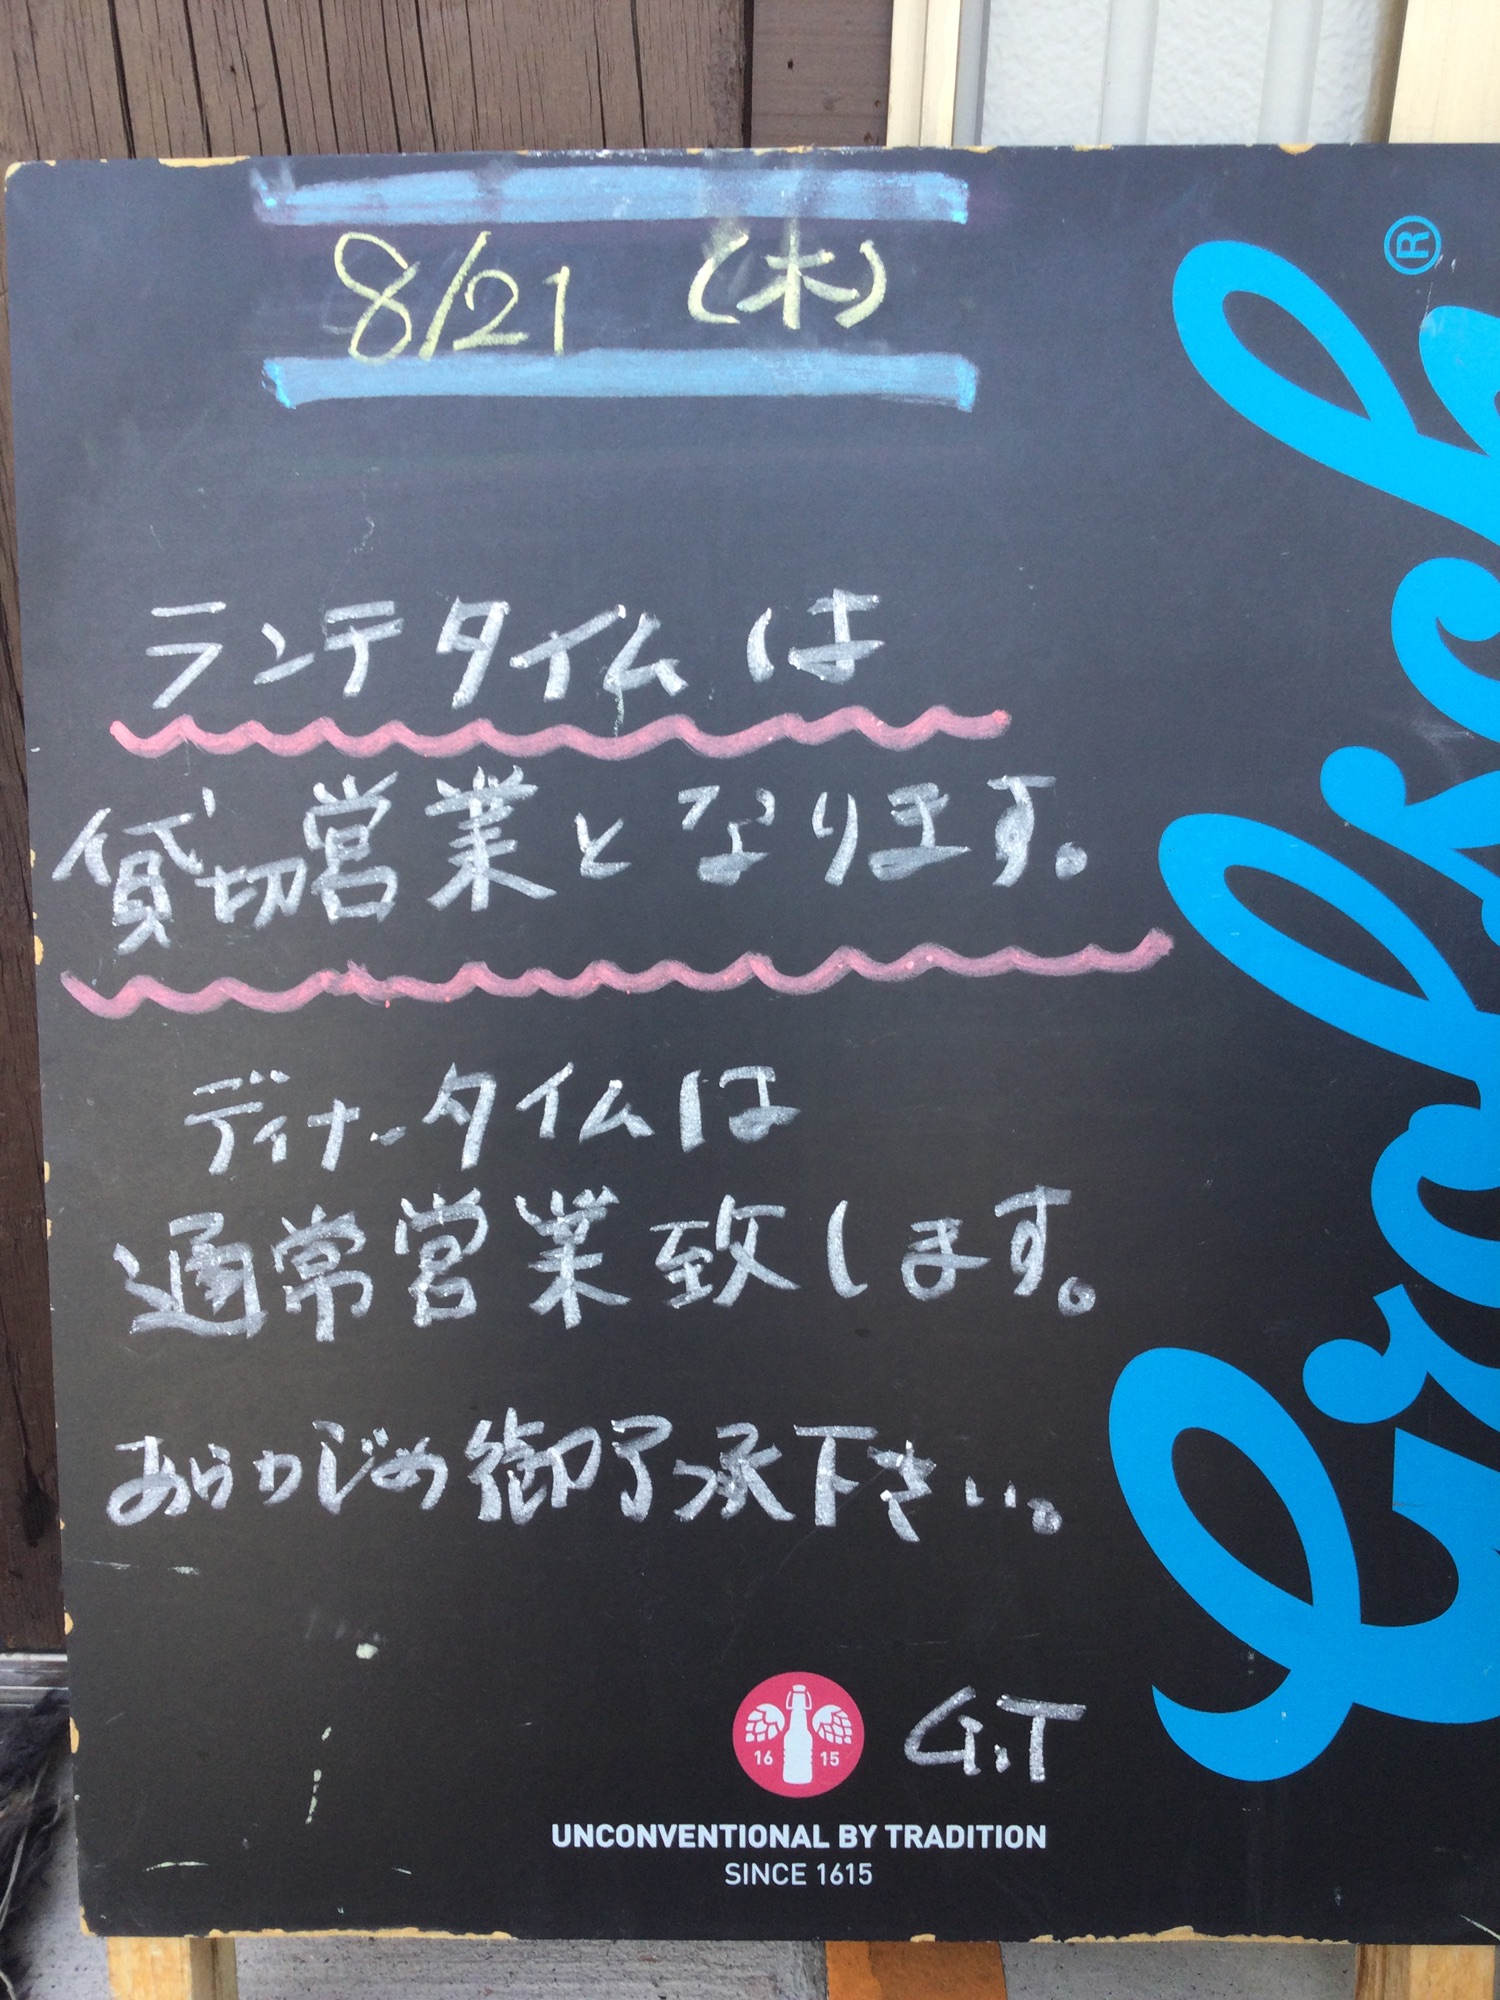 8/21 (木)
ランチタイムは
貸切営業となります。
ディナータイムは
通常営業致します。
あらかじめ御了承下さい。
G.T
16 15
UNCONVENTIONAL BY TRADITION
SINCE 1615
Grolsch®